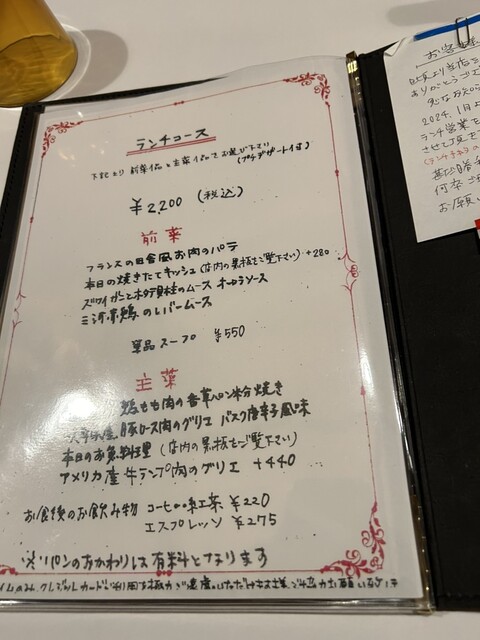 ランチコース
下記より 前菜1品と主菜1品をお選び下さい
(プチデザート付)
¥2,200 (税込)
前菜
フランスの田舎風お肉のパテ
本日の焼きたてキッシュ (店内の黒板をご覧下さい) +280
ズワイガニとホタテ貝柱のムース オーロラソース
三河赤鶏のレバームース
単品スープ ¥550
主菜
鶏もも肉の香草パン粉焼き
豚ロース肉のグリエ バスク唐辛子風味
本日のお魚料理 (店内の黒板をご覧下さい)
アメリカ産牛ランプ肉のグリエ +440
お食後のお飲み物 コーヒーor紅茶 ¥220
エスプレッソ ¥275
※パンのおかわりは有料となります
クレジットカード
お客様
当店
ありがとう
2024.1月
ランチ営業を
させて頂
何卒
お願い